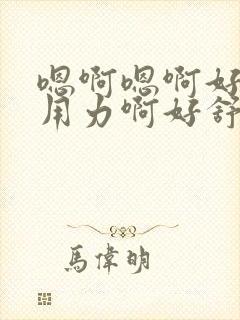 嗯啊嗯啊好
用力啊好舒
馬偉明